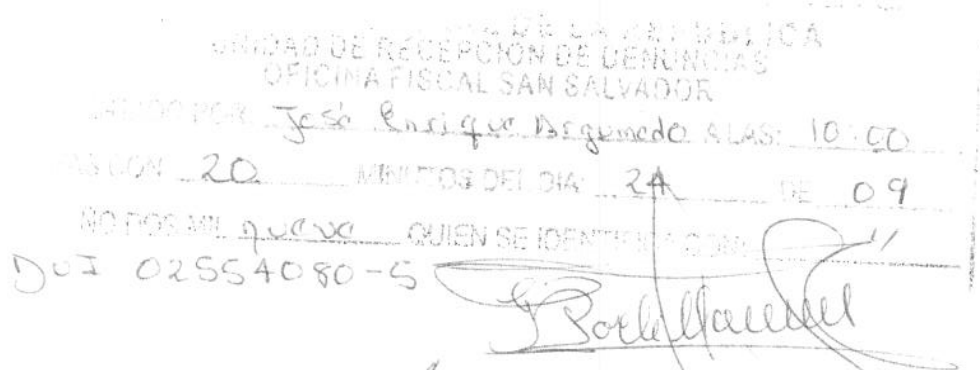 DE LA REPUBLICA
UNIDAD DE RECEPCION DE DENUNCIAS
OFICINA FISCAL SAN SALVADOR
POR: José Enrique Argumedo A LAS: 10:00
CON 20 MINUTOS DEL DIA 24 DE 09
ÑO DOS MIL nueve QUIEN SE IDENTIFICA CON:
DUI 02554080-5